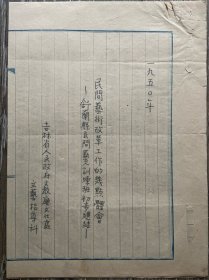 一九五〇年
民間藝術改革工作的幾點體會
—舒蘭縣民間藝人訓練班初步總結—
吉林省人民政府文教廳文化處
文藝指導科